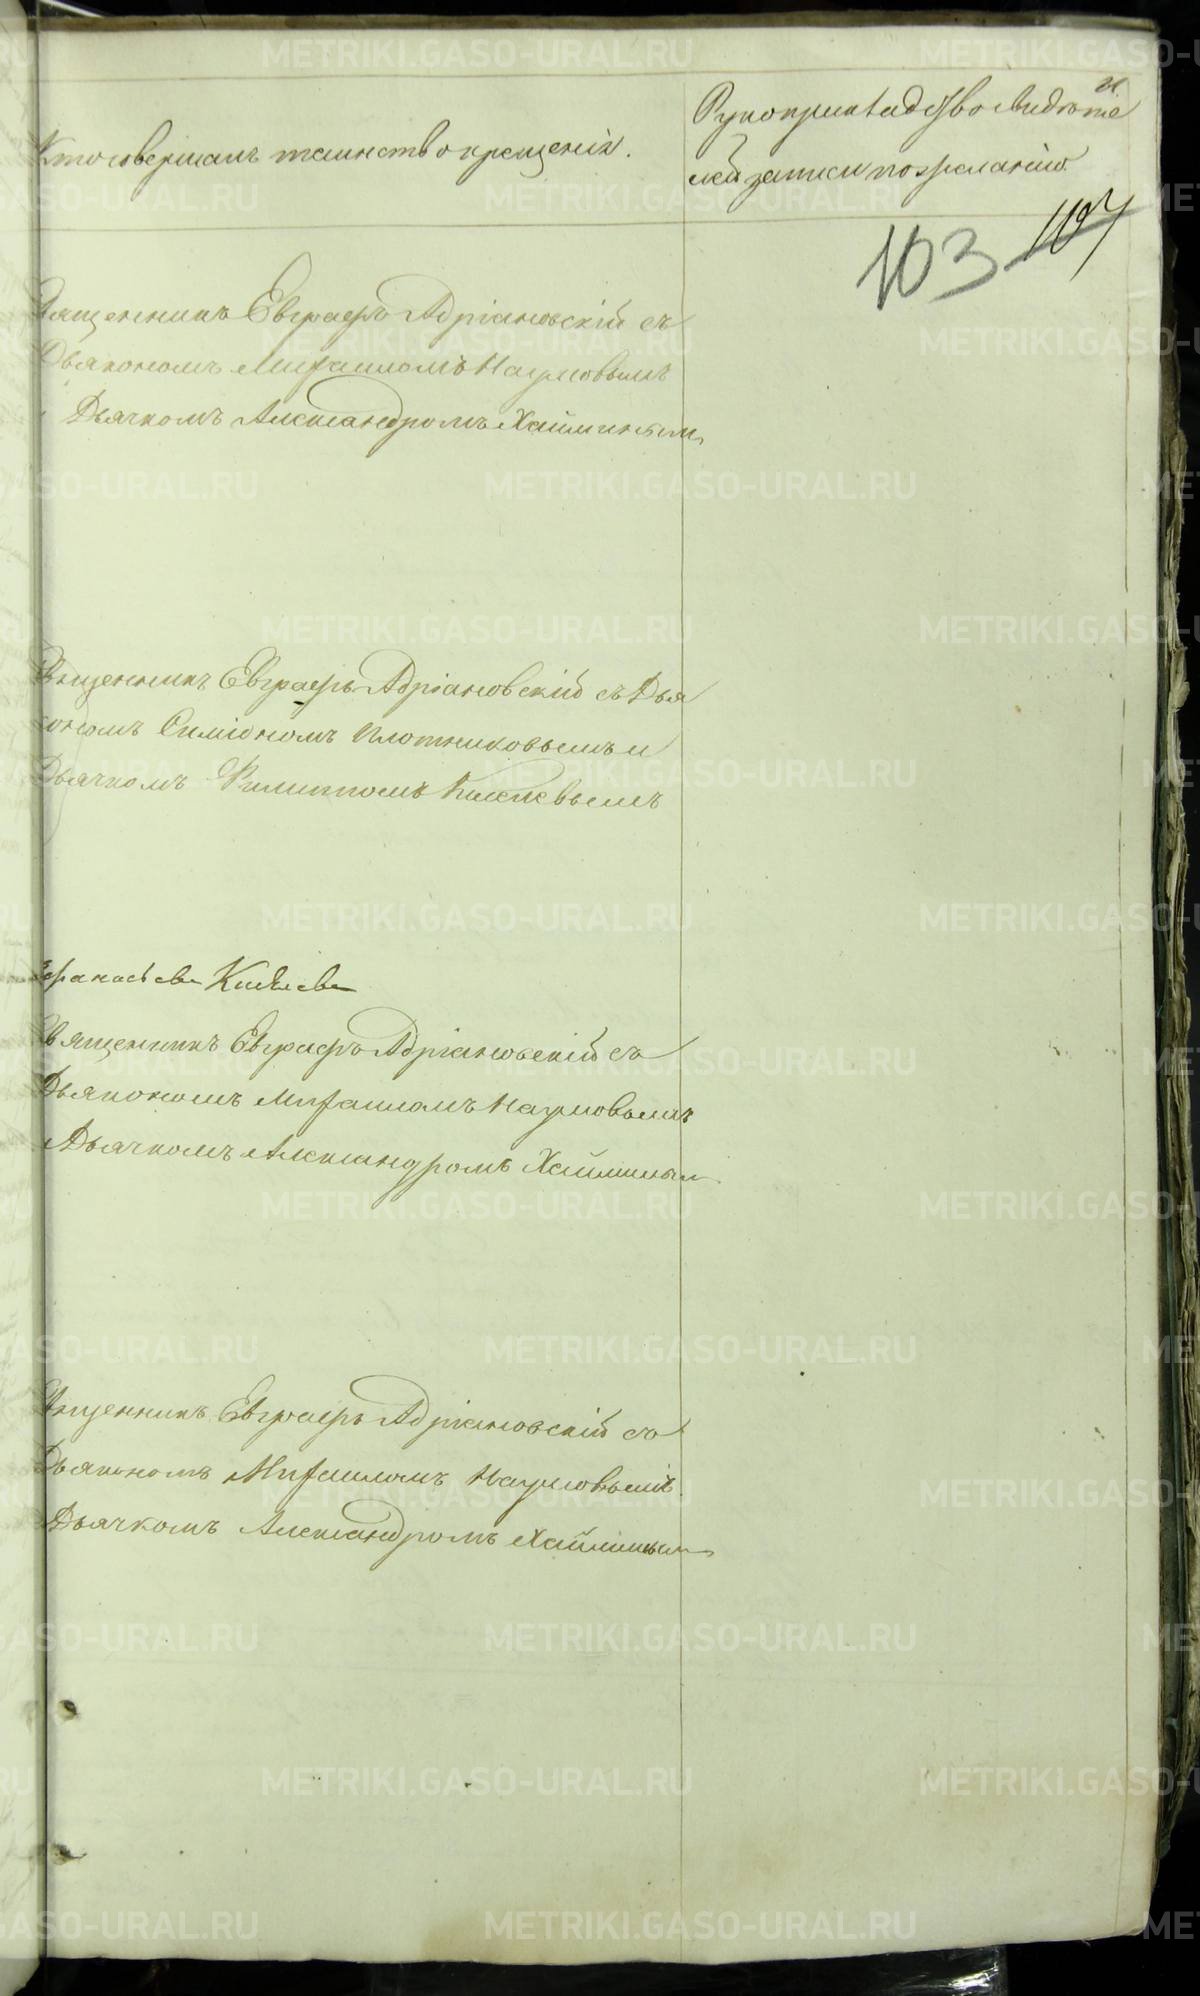 Кто совершалъ таинство крещенія.
Рукоприкладство свидѣте
лей записи по желанію
103 107
Священникъ Евграфъ Адріановскій съ
Дьякономъ Михаиломъ Наумовымъ
и Дьячкомъ Александромъ Хайминымъ
Священникъ Евграфъ Адріановскій съ Дья
кономъ Симіономъ Плотниковымъ и
Дьячкомъ Филиппомъ
Священникъ Евграфъ Адріановскій съ
Дьякономъ Михаиломъ Наумовымъ
Дьячкомъ Александромъ Хайминым
Священникъ Евграфъ Адріановскій съ
Дьякономъ Михаиломъ Наумовымъ
Дьячкомъ Александромъ Хайминым
METRIKI.GASO-URAL.RU